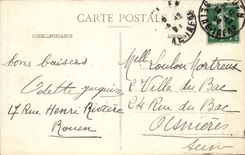 CARTE POSTALE
CORRESPONDANCE
bons baisers
Odette
17 Rue Henri Rivière
Rouen
Mell Loulou Mortreux
2 Villa du Bac
24 Rue du Bac
Asnières
Seine